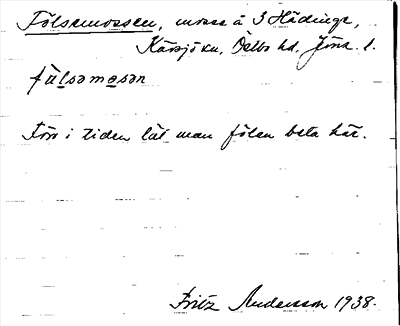 Fölsamossen, mosse å 3 Hädinge,
Kävsjö sn, Östbo hd, Jönk. l.
fö̀lsamosan
Förr i tiden lät man fölen beta här.
Fritz Andersson 1938.